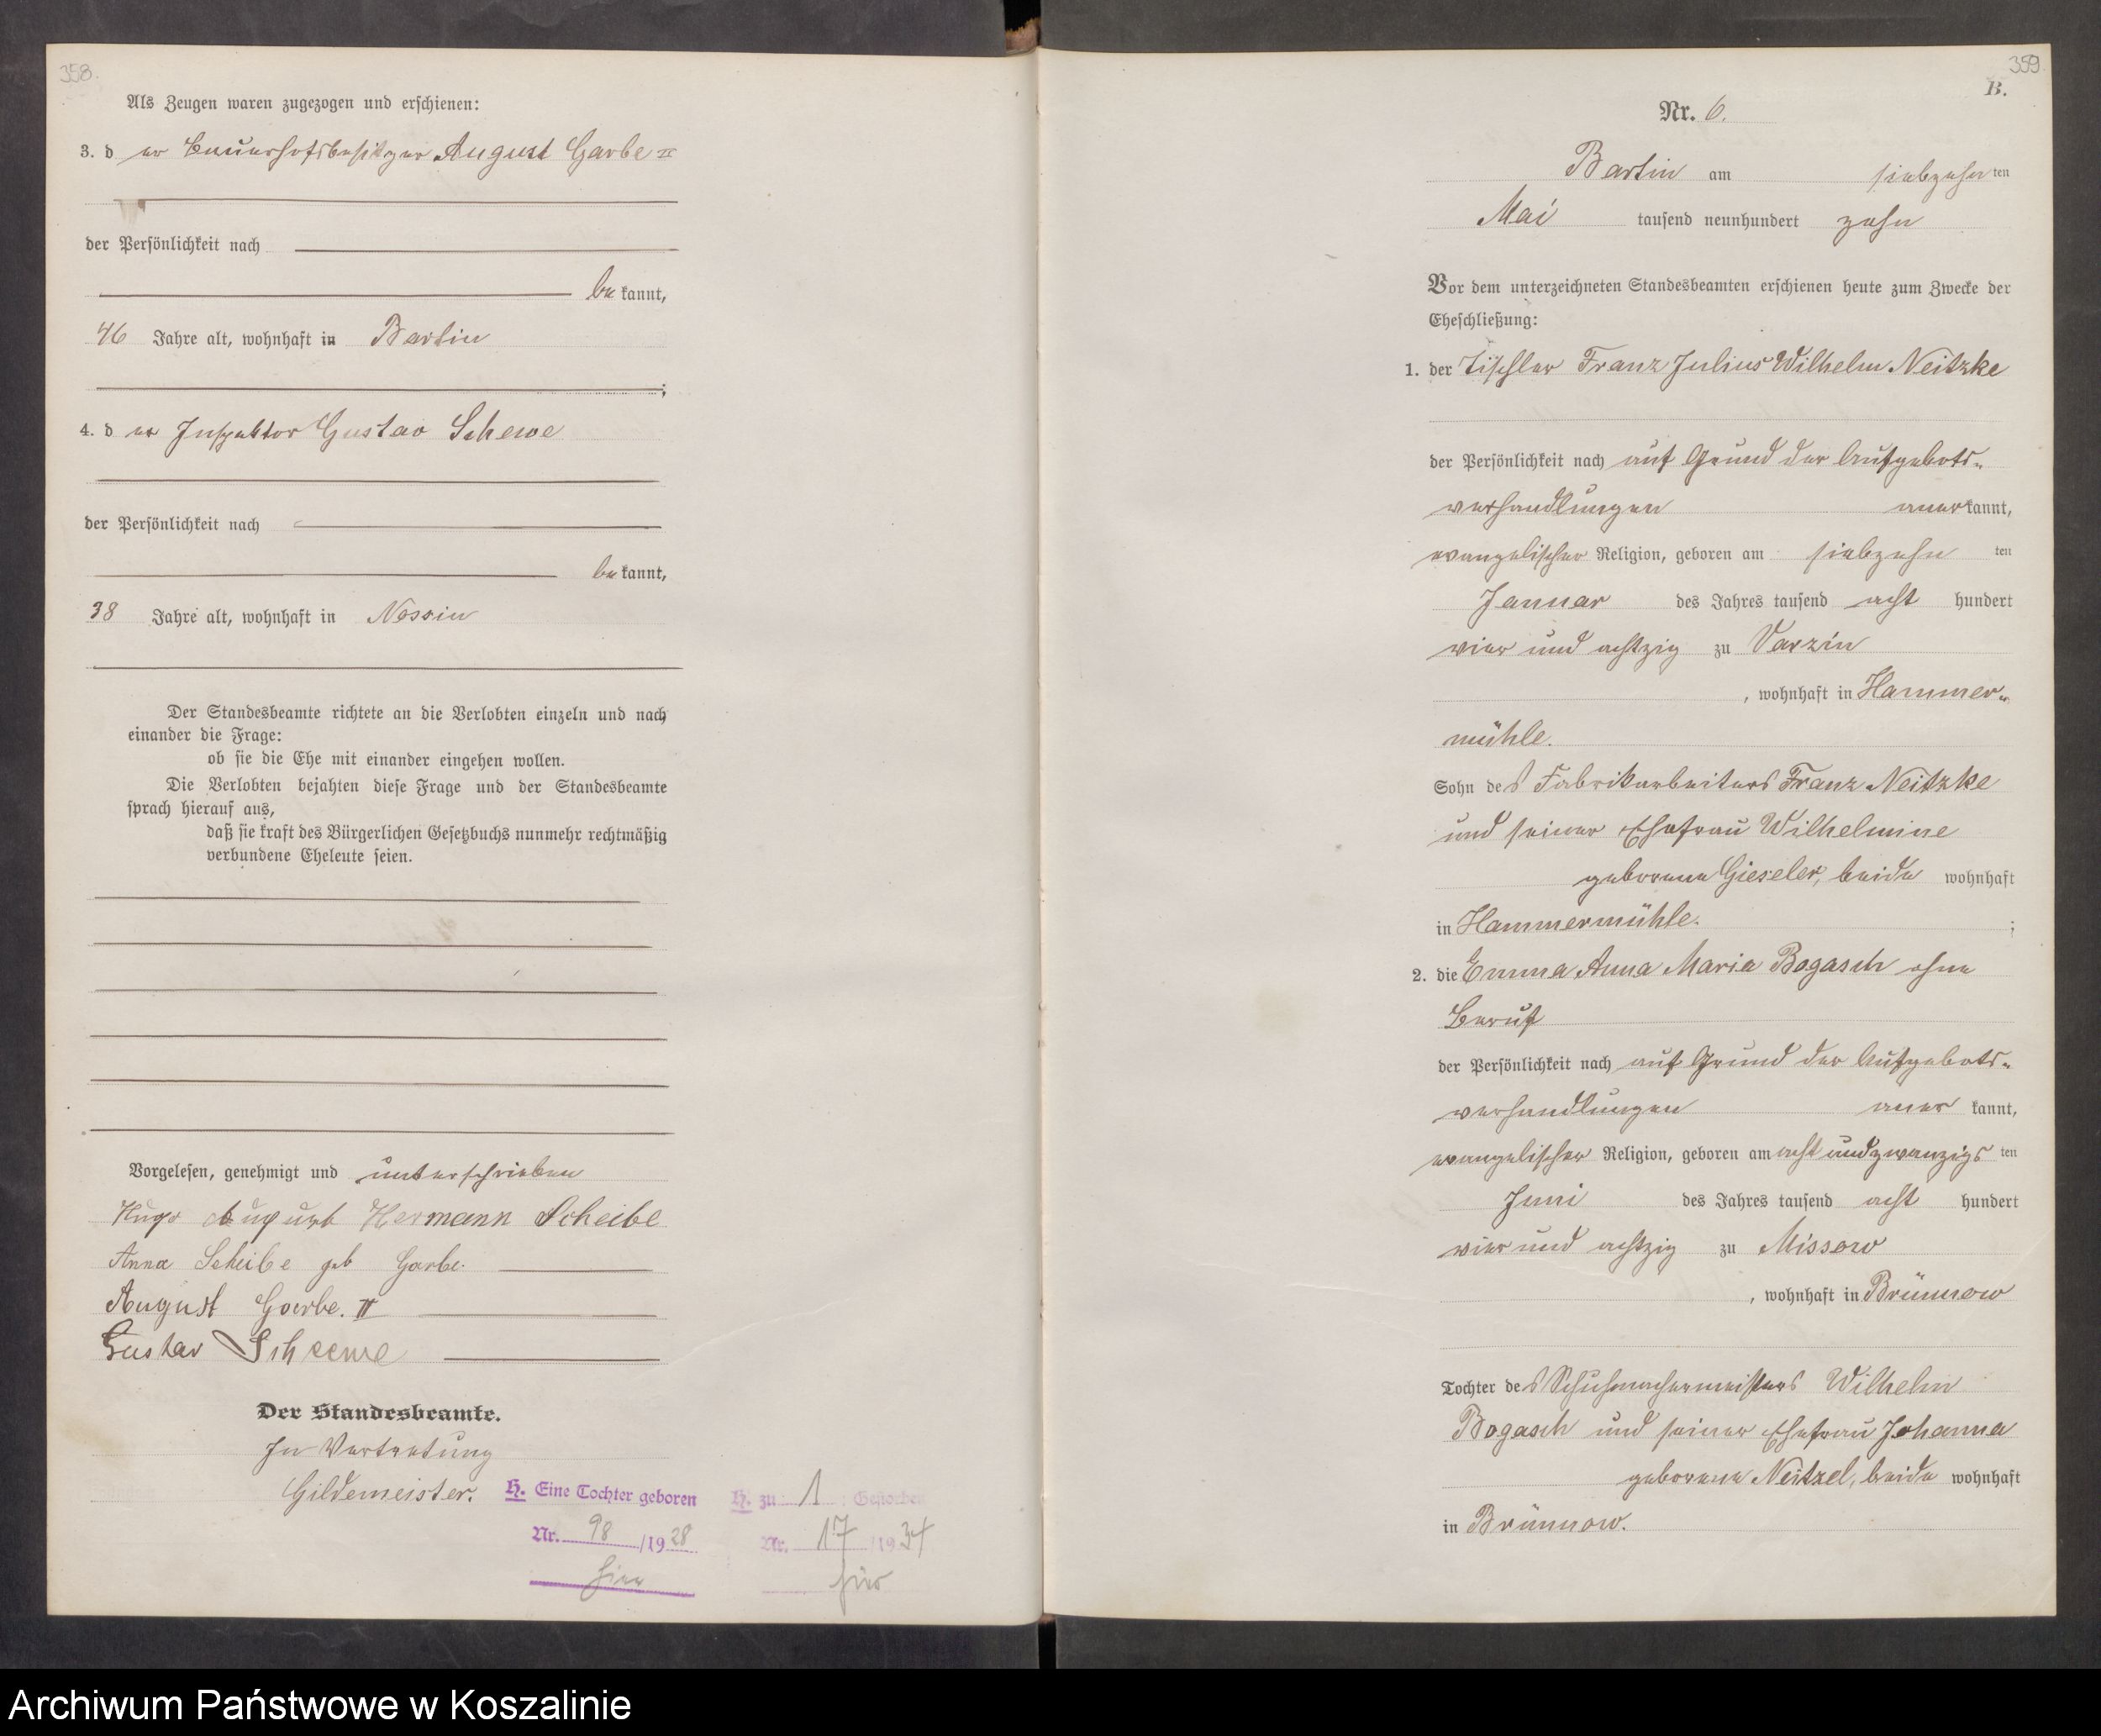 358.
Als Zeugen waren zugezogen und erschienen:
3. der Bauerhofsbesitzer August Garbe II
der Persönlichkeit nach
bekannt,
46 Jahre alt, wohnhaft in Bartin
;
4. der Inspektor Gustav Schewe
der Persönlichkeit nach
bekannt,
38 Jahre alt, wohnhaft in Nossin
Der Standesbeamte richtete an die Verlobten einzeln und nach
einander die Frage:
ob sie die Ehe mit einander eingehen wollen.
Die Verlobten bejahten diese Frage und der Standesbeamte
sprach hierauf aus,
daß sie kraft des Bürgerlichen Gesetzbuchs nunmehr rechtmäßig
verbundene Eheleute seien.
Vorgelesen, genehmigt und unterschrieben
Hugo August Hermann Scheibe
Anna Scheibe geb Garbe.
August Garbe. II
Gustav Scheewe
Der Standesbeamte.
In Vertretung
Gildemeister.
H. Eine Tochter geboren
Nr. 98 /1928
hier
H. zu 1 Gestorben
Nr. 17 /1934
hier
359.
B.
Nr. 6.
Bartin am siebzehnten
Mai tausend neunhundert zehn
Vor dem unterzeichneten Standesbeamten erschienen heute zum Zwecke der
Eheschließung:
1. der Tischler Franz Julius Wilhelm Neitzke
der Persönlichkeit nach auf Grund der Aufgebots-
verhandlungen anerkannt,
evangelischer Religion, geboren am siebzehn ten
Januar des Jahres tausend acht hundert
vier und achtzig zu Varzin
, wohnhaft in Hammer-
mühle.
Sohn des Fabrikarbeiters Franz Neitzke
und seiner Ehefrau Wilhelmine
geborene Gieseler, beide wohnhaft
in Hammermühle. ;
2. die Emma Anna Maria Bogasch ohne
Beruf
der Persönlichkeit nach auf Grund der Aufgebots-
verhandlungen aner kannt,
evangelischer Religion, geboren am acht und zwanzigs ten
Juni des Jahres tausend acht hundert
vier und achtzig zu Missow
, wohnhaft in Brünnow
Tochter des Schuhmachermeisters Wilhelm
Bogasch und seiner Ehefrau Johanna
geborene Neitzel, beide wohnhaft
in Brünnow.
Archiwum Państwowe w Koszalinie